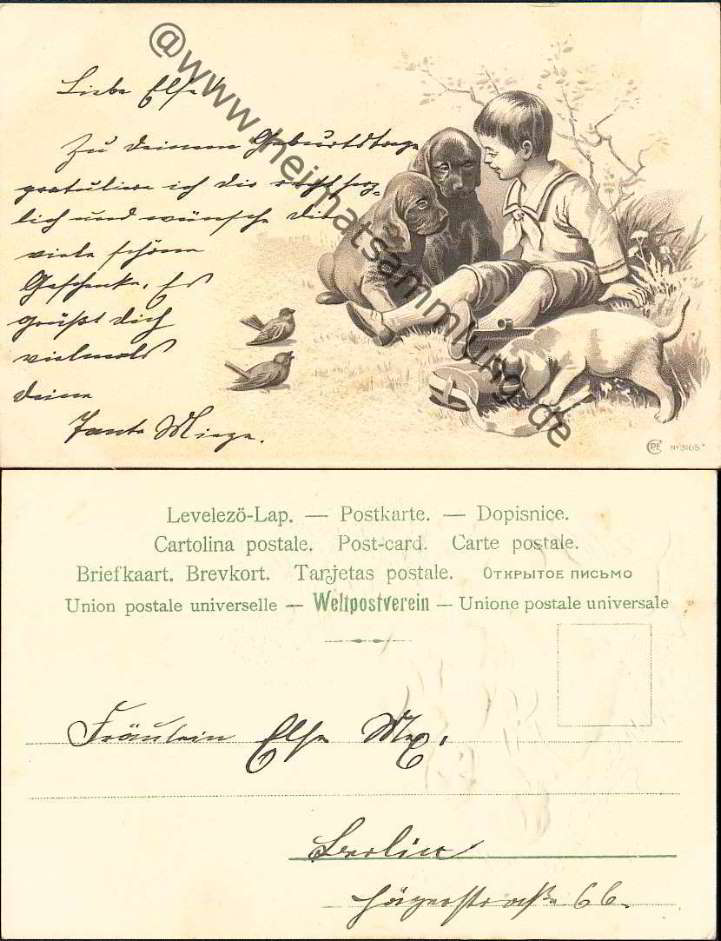 Liebe Else!
Zu deinem Geburtstage
gratuliere ich dir recht herz-
lich und wünsche dir
viele schöne
Geschenke. Es
grüßt dich
vielmals
deine
Tante Mieze.
@www.heimatsammlung.de
Levelező-Lap. — Postkarte. — Dopisnice.
Cartolina postale. Post-card. Carte postale.
Briefkaart. Brevkort. Tarjetas postale. Открытое письмо
Union postale universelle — Weltpostverein — Unione postale universale
Fräulein Else
Berlin
Jägerstraße 66.